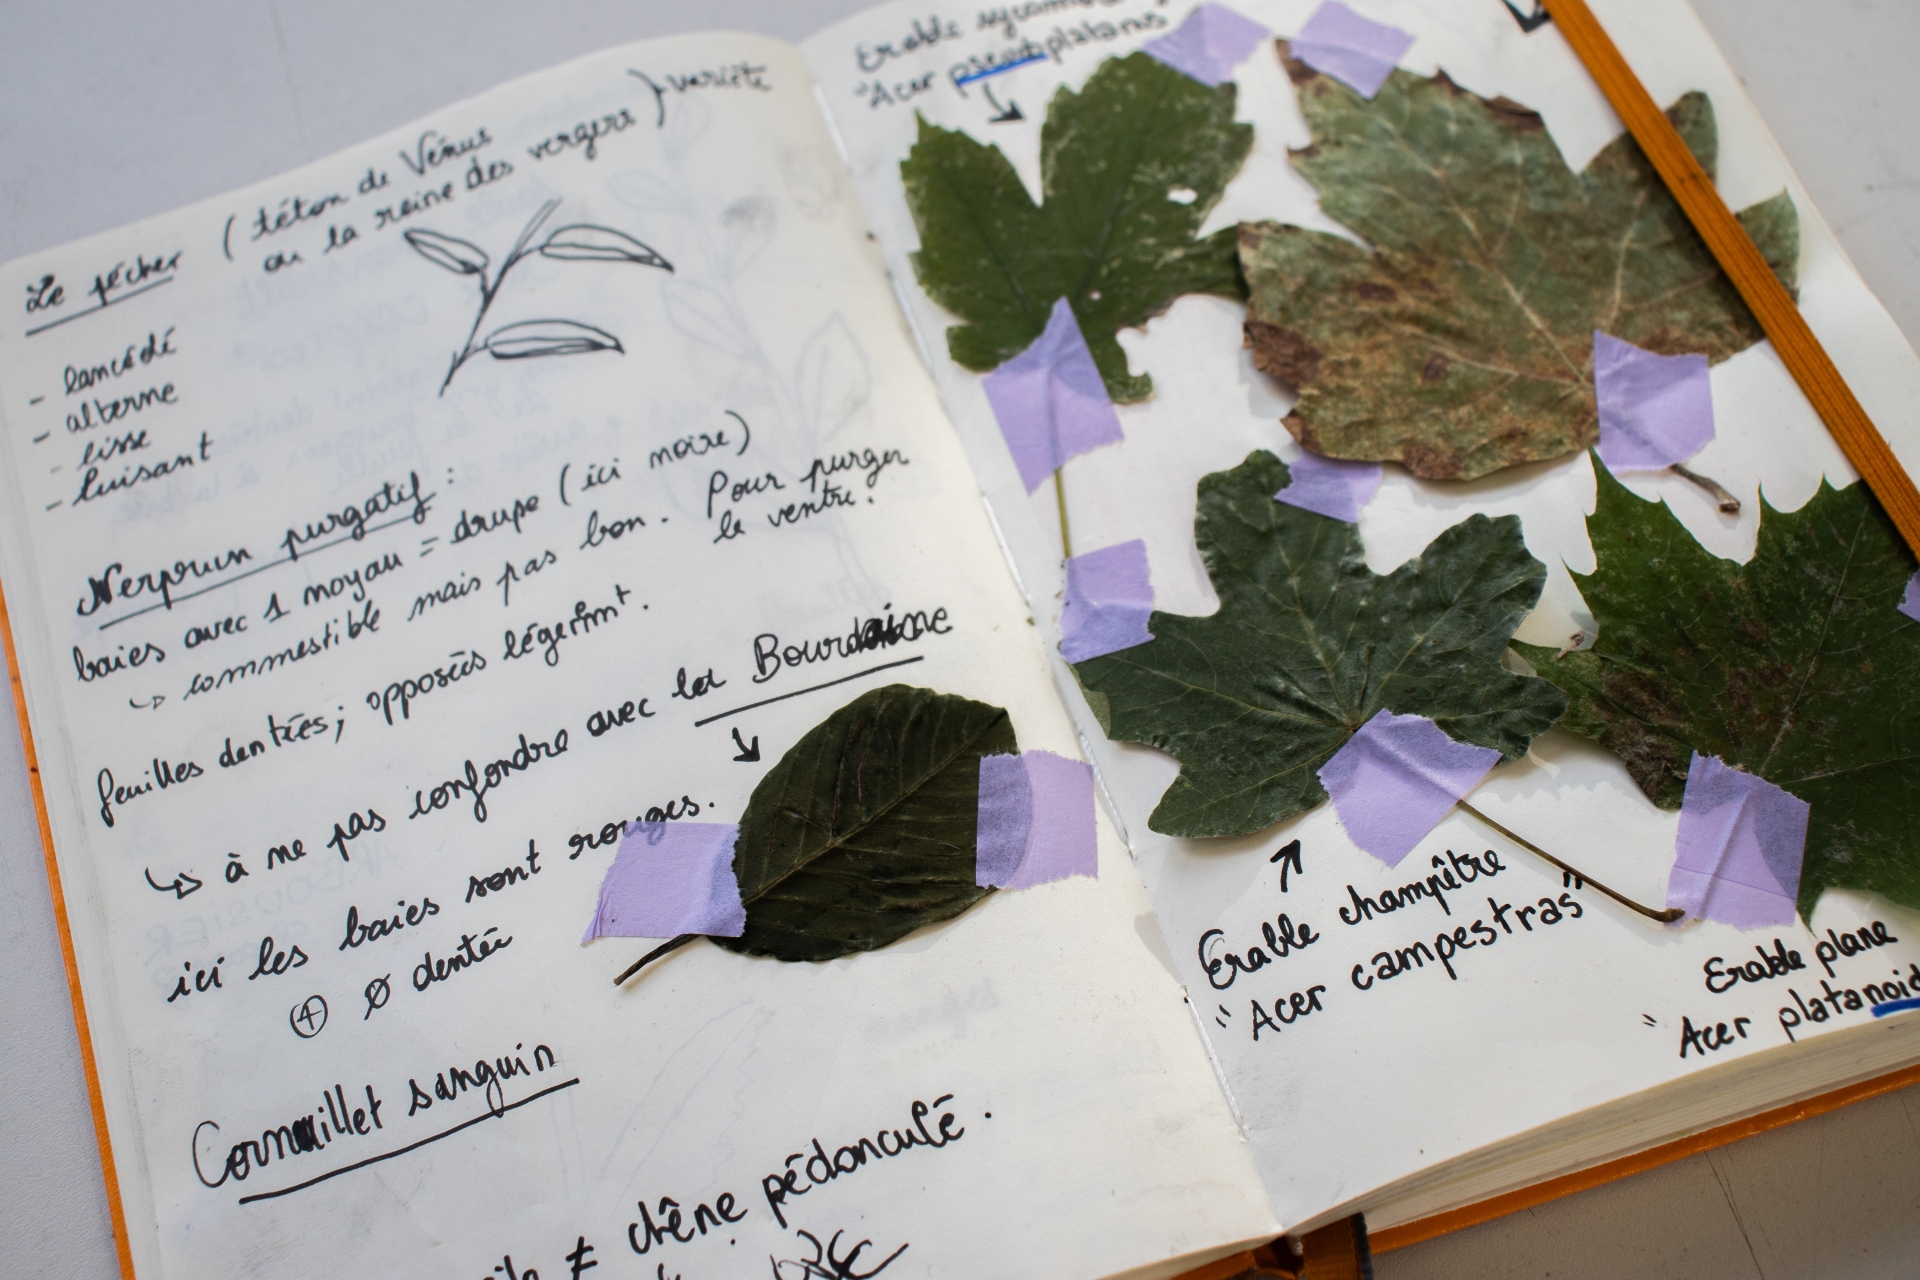 Le pêcher (téton de Vénus
ou la reine des vergers) variété
- lancédé
- alterne
- lisse
- luisant
Nerprun purgatif :
baies avec 1 noyau = drupe (ici noire)
↳ commestible mais pas bon. Pour purger
le ventre.
feuilles dentées; opposées légerimt.
↳ à ne pas confondre avec la Bourdaine
ici les baies sont rouges.
⊕ Ø dentée
Cornouillet sanguin
≠ chêne pédonculé.
Erable
"Acer pseudoplatanus"
Erable champêtre
"Acer campestras"
Erable plane
"Acer platanoid